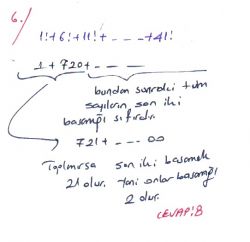 6./
1!+6!+11!+ - - - +41!
1 + 720 + - - —
bundan sonraki tüm
sayıların son iki
basamağı sıfırdır.
721 + - - - 00
Toplanırsa son iki basamak
21 olur. Yani onlar basamağı
2 olur.
CEVAP: B